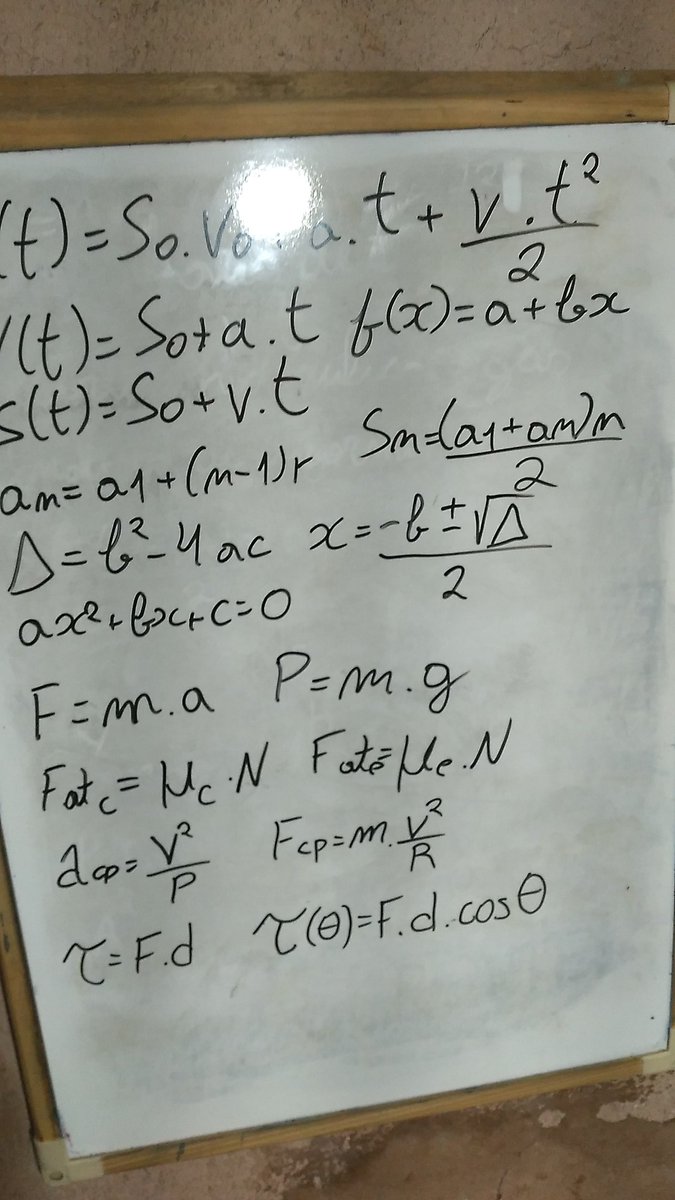 (t) = So. Vo . a. t + v . t² / 2
(t) = So + a . t f(x) = a + bx
S(t) = So + v . t
an = a1 + (n-1) r Sn = (a1 + an) n / 2
Δ = b² - 4 ac x = -b ± √Δ / 2
ax² + bx + c = 0
F = m . a P = m . g
Fat c = μc . N Fat e = μe . N
acp = v² / P Fcp = m . v² / R
τ = F . d τ(θ) = F . d . cos θ